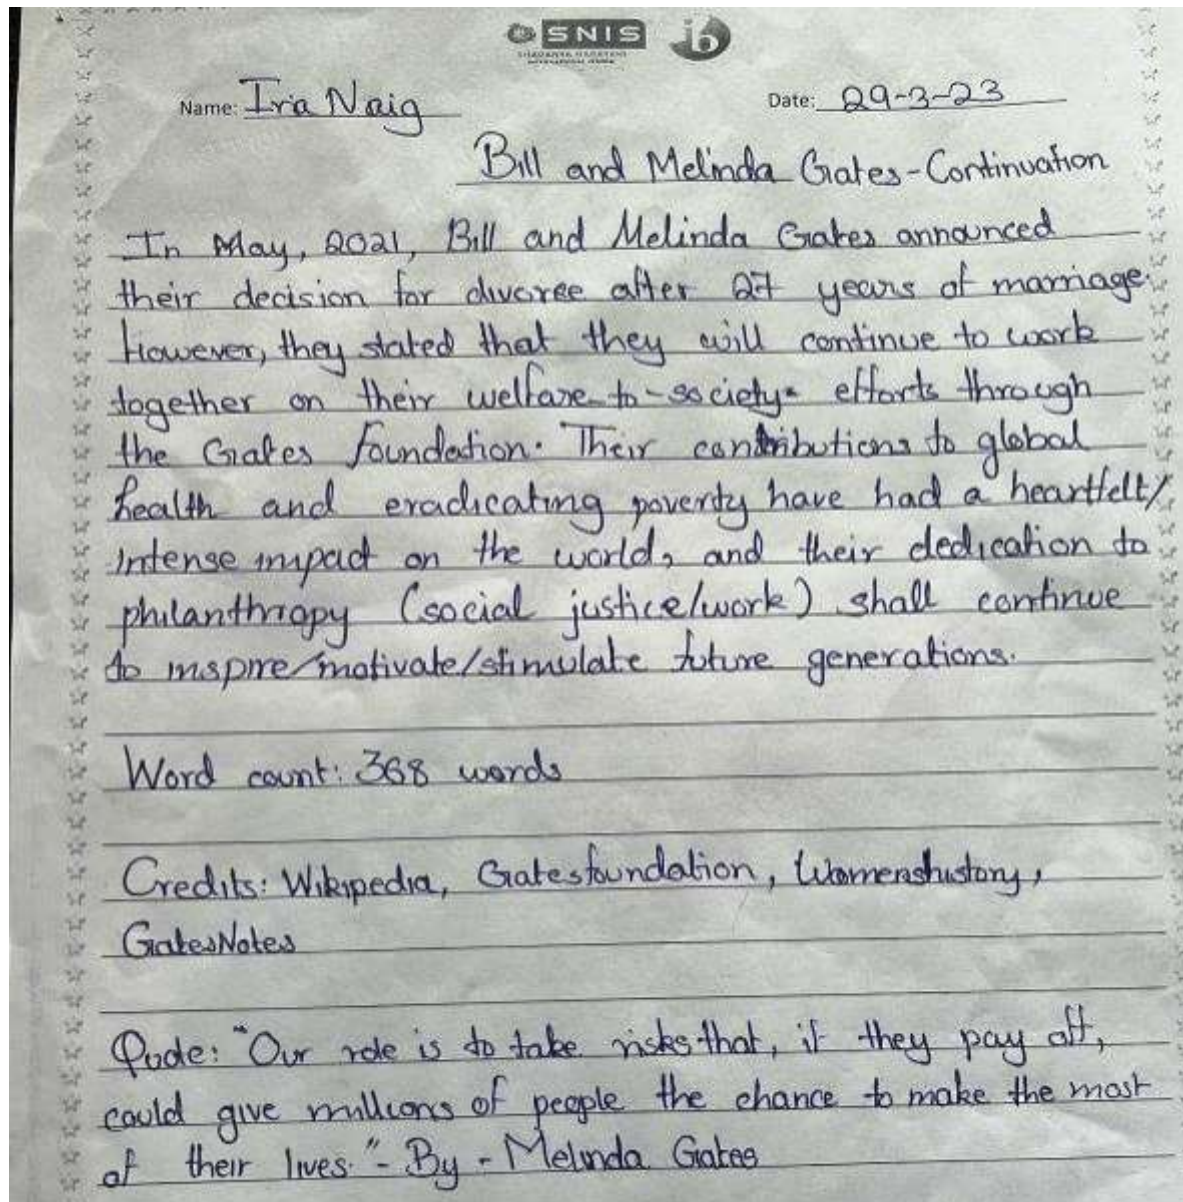 SNIS ib
Name: Ira Naig Date: 29-3-23
Bill and Melinda Gates-Continuation
In May, 2021, Bill and Melinda Gates announced
their decision for divorce after 27 years of marriage.
However, they stated that they will continue to work
together on their welfare-to-society- efforts through
the Gates foundation. Their contributions to global
health and eradicating poverty have had a heartfelt/
intense impact on the world, and their dedication to
philanthropy (social justice/work) shall continue
to inspire/motivate/stimulate future generations.
Word count: 368 words
Credits: Wikipedia, Gatesfoundation, Womenshistory,
GatesNotes
Quote: "Our role is to take risks that, if they pay off,
could give millions of people the chance to make the most
of their lives." - By - Melinda Gates